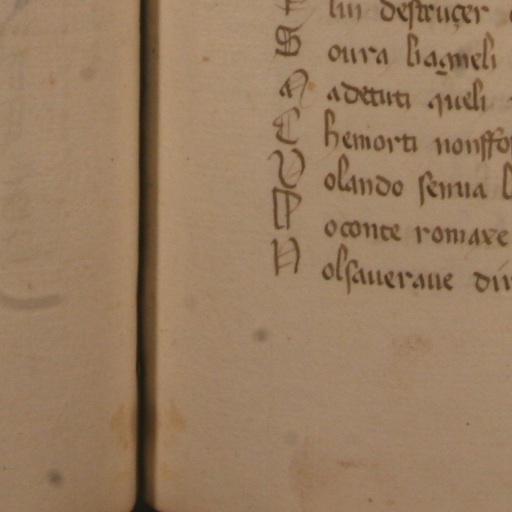 lui destruçer
S oura liagneli
A adetuti queli
C hemorti nonffo
V olando senua l
P oconte romaxe
N olsaueraue dir